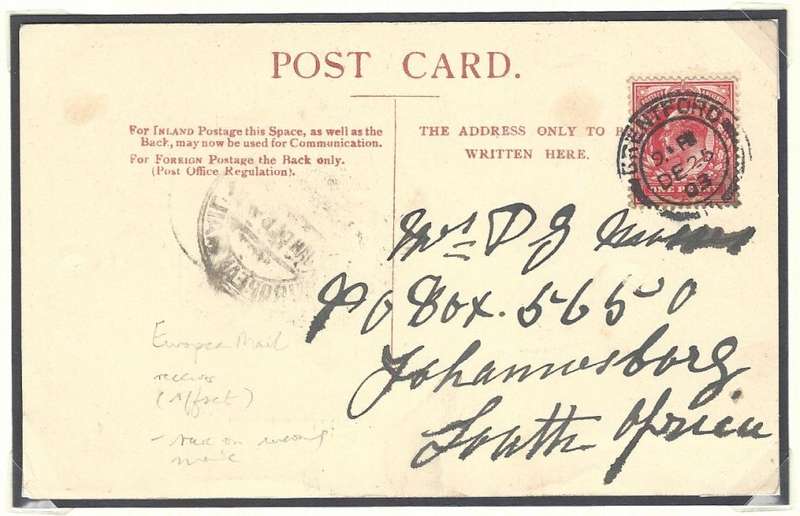 POST CARD.
For INLAND Postage this Space, as well as the
Back, may now be used for Communication.
For FOREIGN Postage the Back only.
(Post Office Regulation).
THE ADDRESS ONLY TO
WRITTEN HERE.
BRENTFORD
DE 25
03
ONE PENNY
Mrs D G
PO Box. 5650
Johannesborg
South Africa
European Mail
receiver
(offset)
- rare on